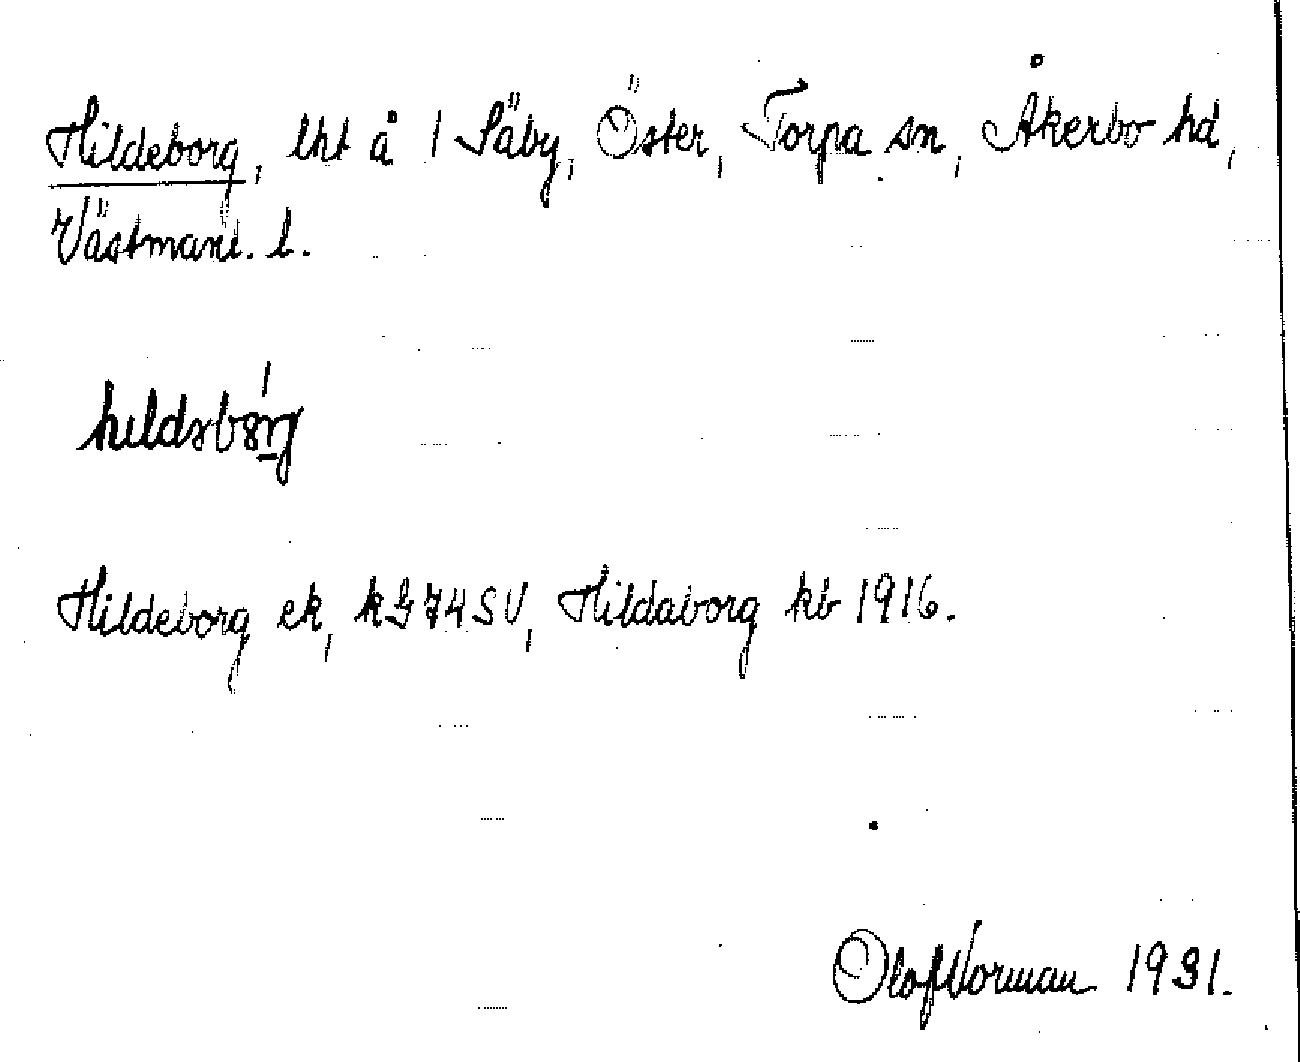 Hildeborg, lht å 1 Säby, Öster, Torpa sn, Åkerbo hd,
Västmanl. l.
Hildeborg ek, kG74SV, Hildaborg kb 1916.
Olof Norman 1931.